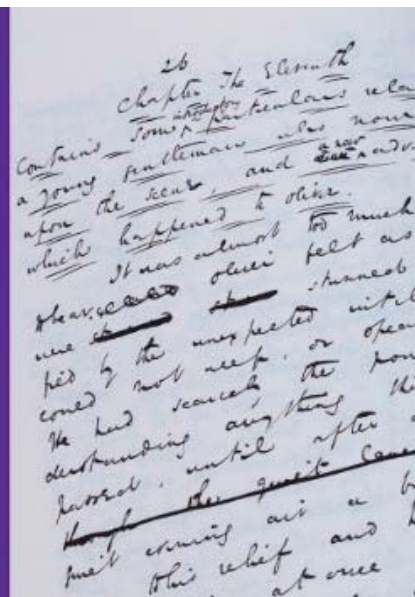 26
Chapter The Eleventh
introductory
Contains some particulars rela
a young gentleman who now
upon the scene, and a new adv
which happened to Oliver.
It was almost too much
hear. Oliver felt as
were stunned
by the unexpected
could not weep, or
He had scarcely the pow
derstanding anything th
passed, until after a
though the quiet
quiet evening air a b
this relief and
at once